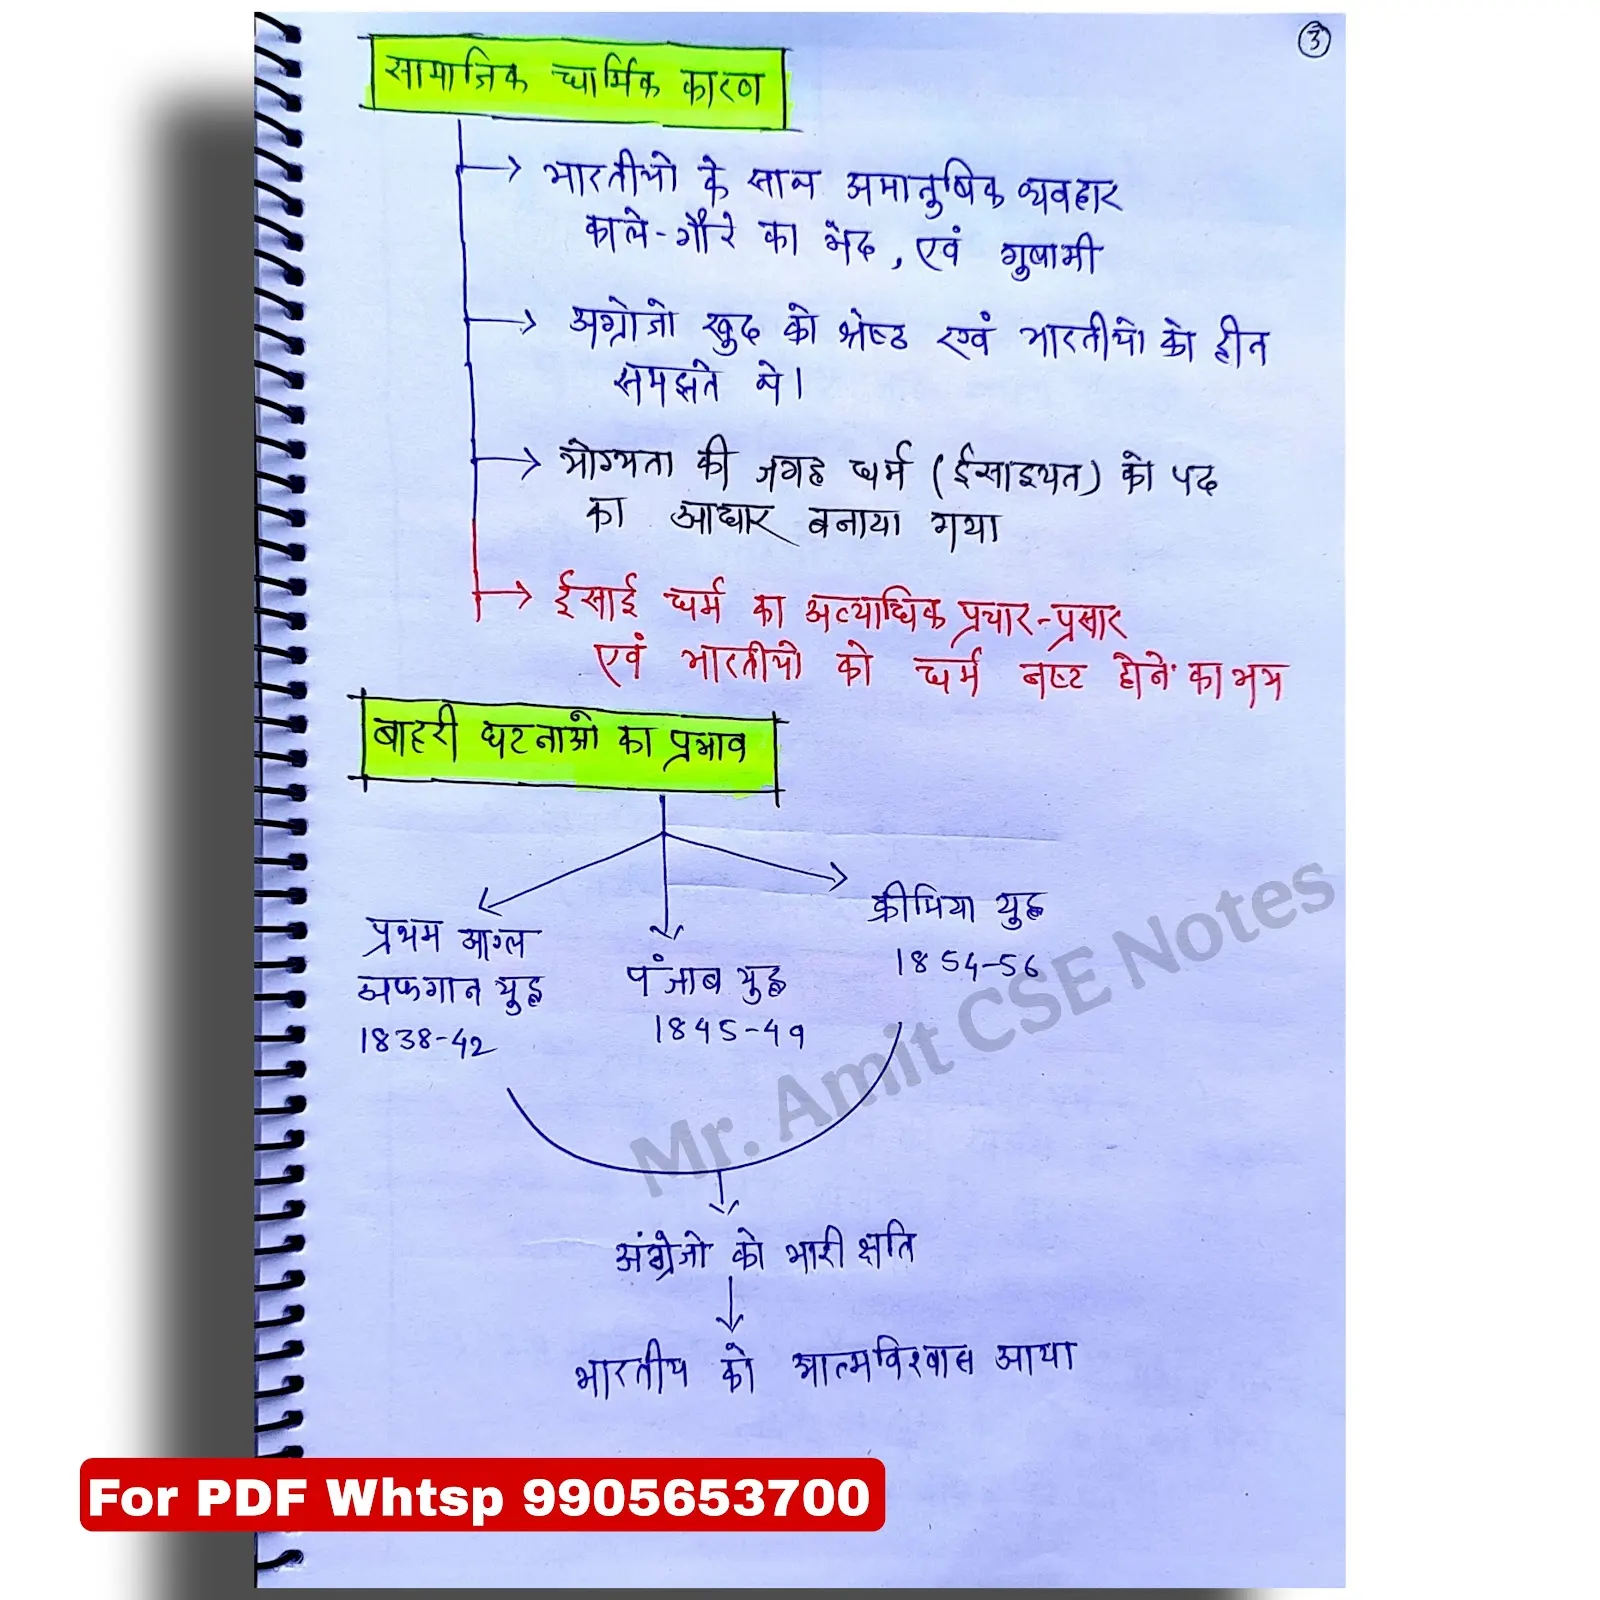 3
सामाजिक धार्मिक कारण
भारतीयो के साथ अमानुषिक व्यवहार
काले-गौरे का भेद, एवं गुलामी
अंग्रेजो खुद को श्रेष्ठ एवं भारतीयो को हीन
समझते थे।
योग्यता की जगह धर्म (ईसाइयत) को पद
का आधार बनाया गया
ईसाई धर्म का अत्याधिक प्रचार-प्रसार
एवं भारतीयो को धर्म नष्ट होने का भय
बाहरी घटनाओ का प्रभाव
प्रथम आंग्ल
अफगान युद्ध
1838-42
पंजाब युद्ध
1845-49
क्रीमिया युद्ध
1854-56
अंग्रेजो को भारी क्षति
भारतीय को आत्मविश्वास आया
Mr. Amit CSE Notes
For PDF Whtsp 9905653700